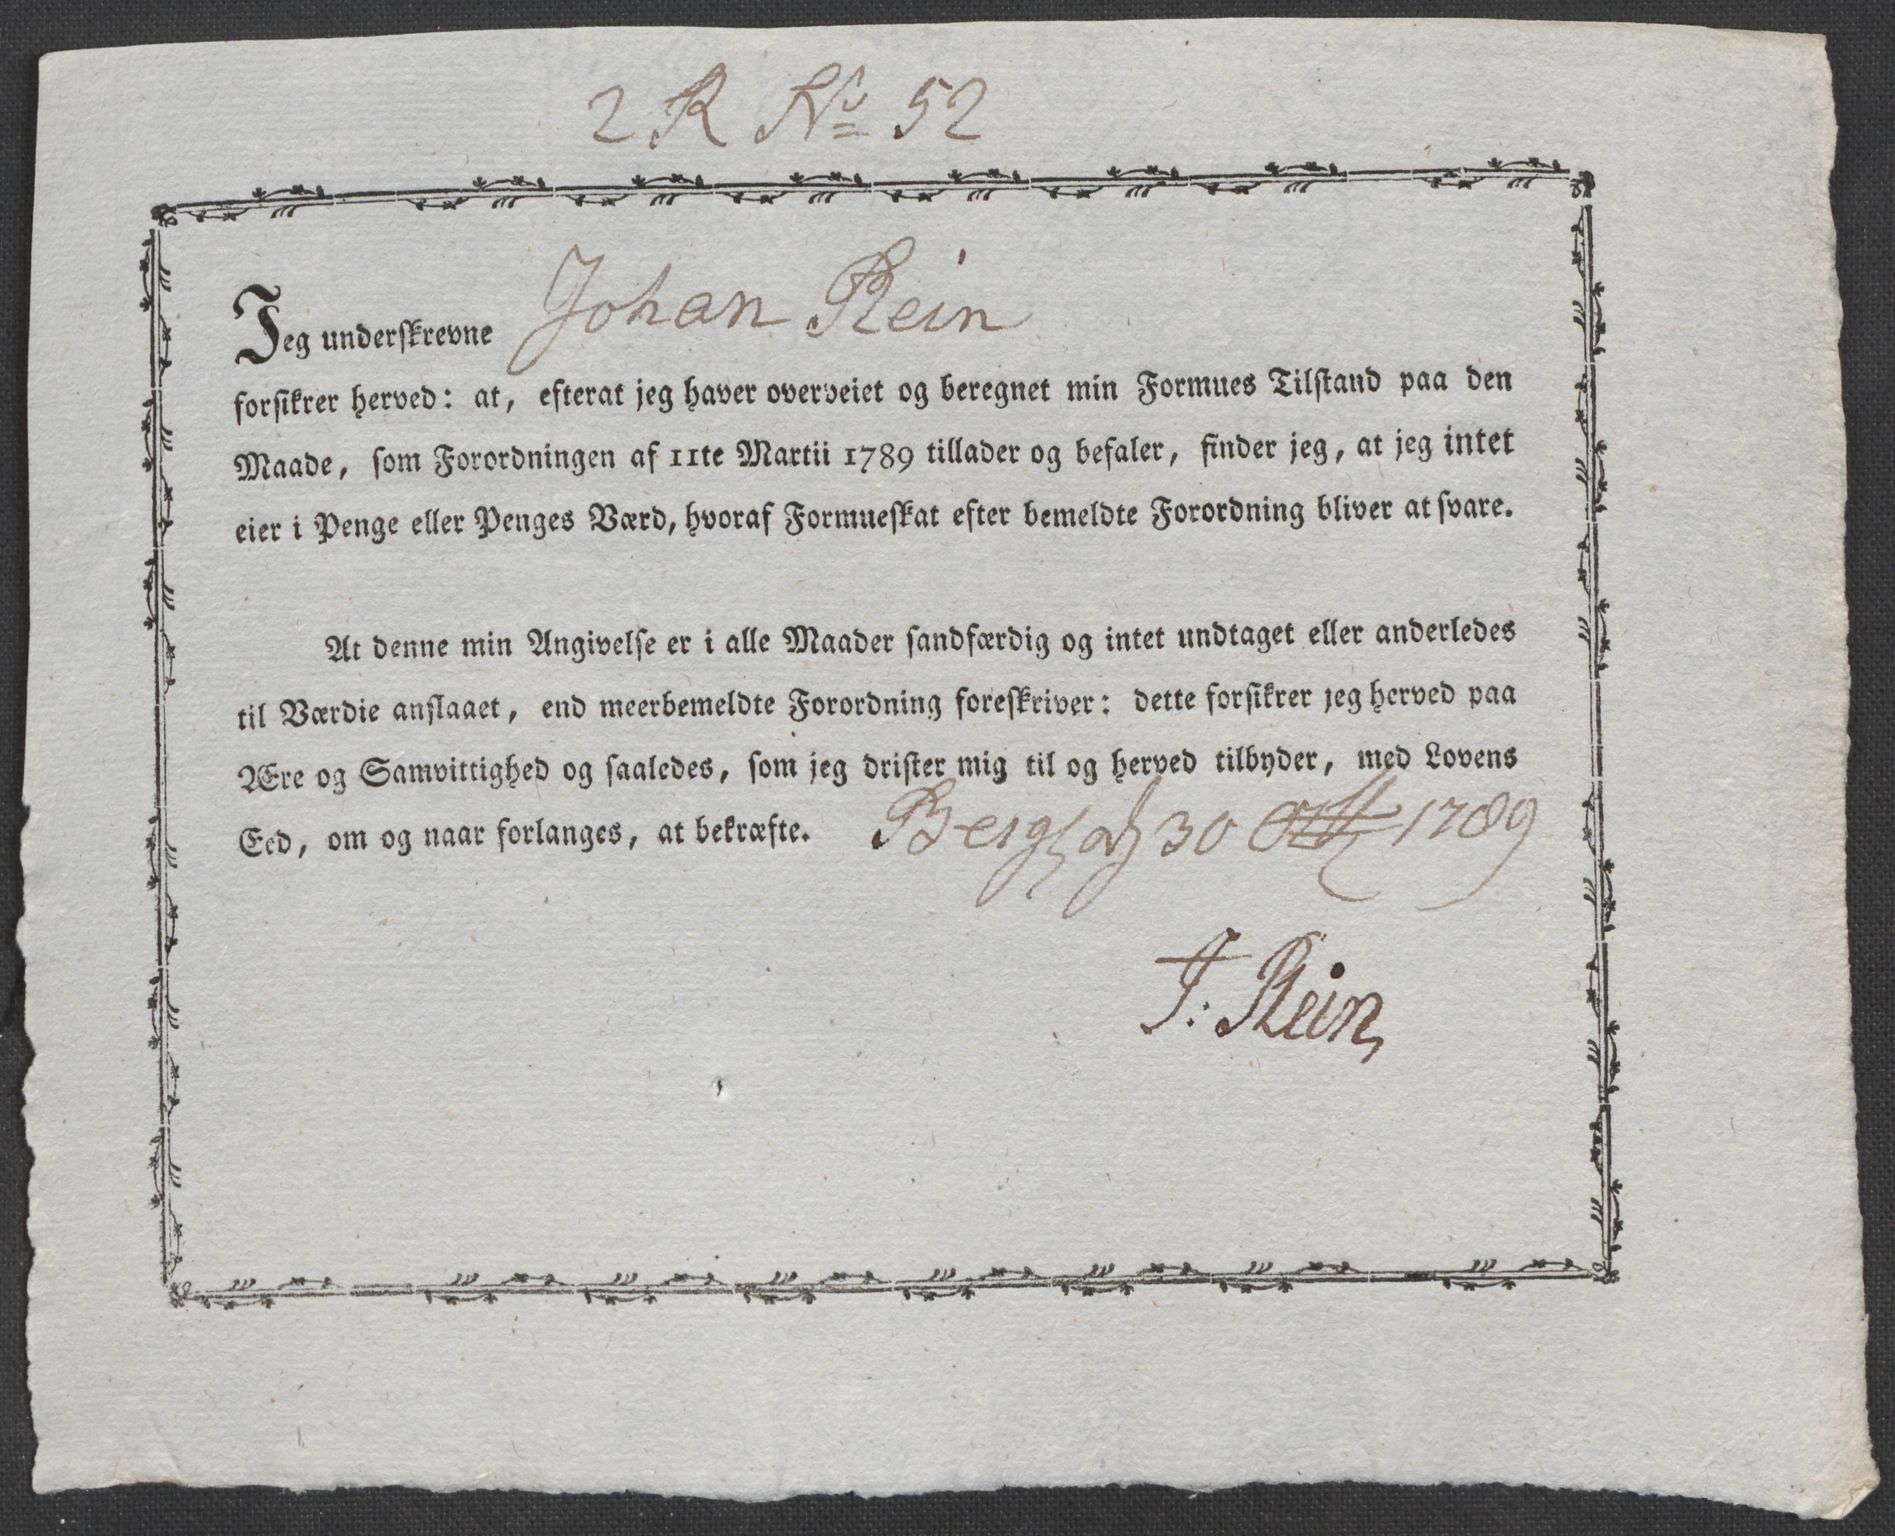 2 R No 52
Jeg underskrevne Johan Rein
forsikrer herved: at, efterat jeg haver overveiet og beregnet min Formues Tilstand paa den
Maade, som Forordningen af 11te Martii 1789 tillader og befaler, finder jeg, at jeg intet
eier i Penge eller Penges Værd, hvoraf Formueskat efter bemeldte Forordning bliver at svare.
At denne min Angivelse er i alle Maader sandfærdig og intet undtaget eller anderledes
til Værdie anslaaet, end meerbemeldte Forordning foreskriver: dette forsikrer jeg herved paa
Ære og Samvittighed og saaledes, som jeg drister mig til og herved tilbyder, med Lovens
Eed, om og naar forlanges, at bekræfte. 30 1789
J: Rein